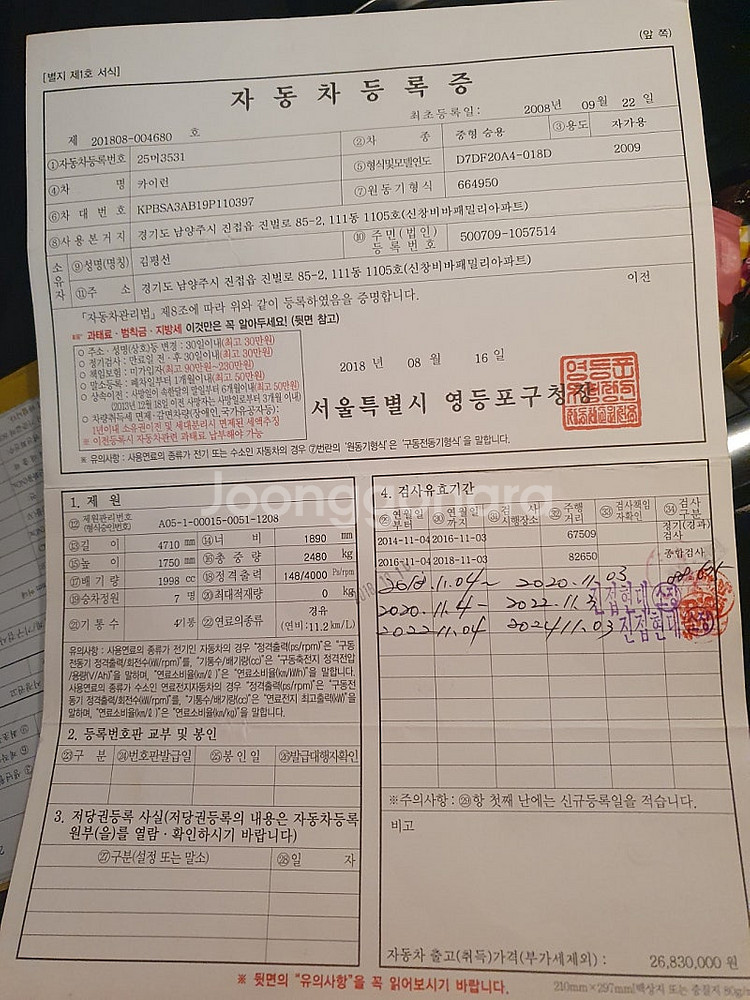 (앞 쪽)
[별지 제1호 서식]
자 동 차 등 록 증
최초등록일: 2008년 09월 22일
제 201808-004680 호
①자동차등록번호 25머3531 ②차 종 중형 승용 ③용도 자가용
④차 명 카이런 ⑤형식및모델연도 D7DF20A4-018D 2009
⑥차 대 번 호 KPBSA3AB19P110397 ⑦원동기형식 664950
⑧사용본거지 경기도 남양주시 진접읍 진벌로 85-2, 111동 1105호(신창비바패밀리아파트)
소유자 ⑨성명(명칭) 김평선 ⑩ 주민(법인)등록번호 500709-1057514
⑪주 소 경기도 남양주시 진접읍 진벌로 85-2, 111동 1105호(신창비바패밀리아파트)
이전
「자동차관리법」 제8조에 따라 위와 같이 등록하였음을 증명합니다.
※ 과태료·범칙금·지방세 이것만은 꼭 알아두세요! (뒷면 참고)
○ 주소·성명(상호)등 변경 : 30일이내(최고 30만원)
○ 정기검사 : 만료일 전·후 30일이내(최고 30만원)
○ 책임보험 : 미가입자(최고 90만원~230만원)
○ 말소등록 : 폐차일부터 1개월이내(최고 50만원)
○ 상속이전 : 사망일이 속한달의 말일부터 6개월이내(최고 50만원)
(2013년 12월 18일 이전 사망자는 사망일로부터 3개월 이내)
○ 차량취득세 면제·감면차량(장애인,국가유공자등):
1년이내 소유권이전 및 세대분리시 면제된 세액추징
※ 이전등록시 자동차관련 과태료 납부해야 가능
2018 년 08 월 16 일
서울특별시 영등포구청장
※ 유의사항 : 사용연료의 종류가 전기 또는 수소인 자동차의 경우 ⑦번란의 '원동기형식'은 '구동전동기형식'을 말합니다.
Joonggonara
1. 제 원
⑫ 제원관리번호(형식승인번호) A05-1-00015-0051-1208
⑬길 이 4710 mm ⑭너 비 1890 mm
⑮높 이 1750 mm ⑯총 중 량 2480 kg
⑰배 기 량 1998 cc ⑱정격출력 148/4000 Ps/rpm
⑲승차정원 7 명 ⑳최대적재량 0 kg
㉑기 통 수 4기통 ㉒연료의종류 경유 (연비:11.2km/L)
유의사항 : 사용연료의 종류가 전기인 자동차의 경우 "정격출력(ps/rpm)"은 "구동
전동기 정격출력/회전수(kW/rpm)"를, "기통수/배기량(cc)"은 "구동축전지 정격전압
/용량(V/Ah)"을 말하며, "연료소비율(km/ℓ)"은 "연료소비율(km/kWh)"을 말합니다.
사용연료의 종류가 수소인 연료전지자동차의 경우 "정격출력(ps/rpm)"은 "구동전
동기 정격출력/회전수(kW/rpm)"를, "기통수/배기량(cc)"은 "연료전지 최고출력(kW)"을
말하며, "연료소비율(km/ℓ)"은 "연료소비율(km/kg)"을 말합니다.
2. 등록번호판 교부 및 봉인
㉓구 분 ㉔번호판발급일 ㉕봉 인 일 ㉖발급대행자확인
3. 저당권등록 사실(저당권등록의 내용은 자동차등록
원부(을)를 열람·확인하시기 바랍니다)
㉗구분(설정 또는 말소) ㉘일 자
4. 검사유효기간
㉙연월일부터 ㉚연월일까지 ㉛검사시행장소 ㉜주행거리 ㉝검사책임자확인 ㉞검사구분
2014-11-04 2016-11-03 67509 정기(경과)검사
2016-11-04 2018-11-03 82650 종합검사
2018.11.04~ 2020.11.03
2020.11.4~ 2022.11.3 진접현대
2022.11.04 2024.11.03 진접현대
※주의사항 : ㉙항 첫째 난에는 신규등록일을 적습니다.
비고
자동차 출고(취득)가격(부가세제외) : 26,830,000 원
※ 뒷면의 "유의사항"을 꼭 읽어보시기 바랍니다.
210mm×297mm[백상지 또는 중질지 80g/